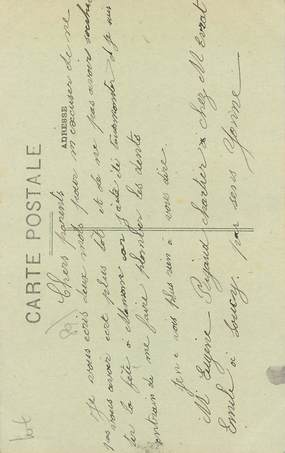 CARTE POSTALE
ADRESSE
Chers parents
Je vous écris deux mots pour m'excuser de ne
pas vous avoir ecrit plus tot et de ne pas avoir souhaité
la fête à Maman car j'ai été tourmenter et je suis
entrain de me faire plomber les dents
Je n'e vous plus rien à vous dire
Mr Eugène Rigaud chartier chez M
Emile à Soucy par sens Yonne